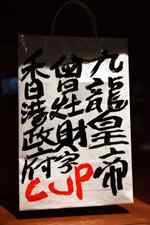 九龍皇帝
曾灶財字
香港政府
CUP